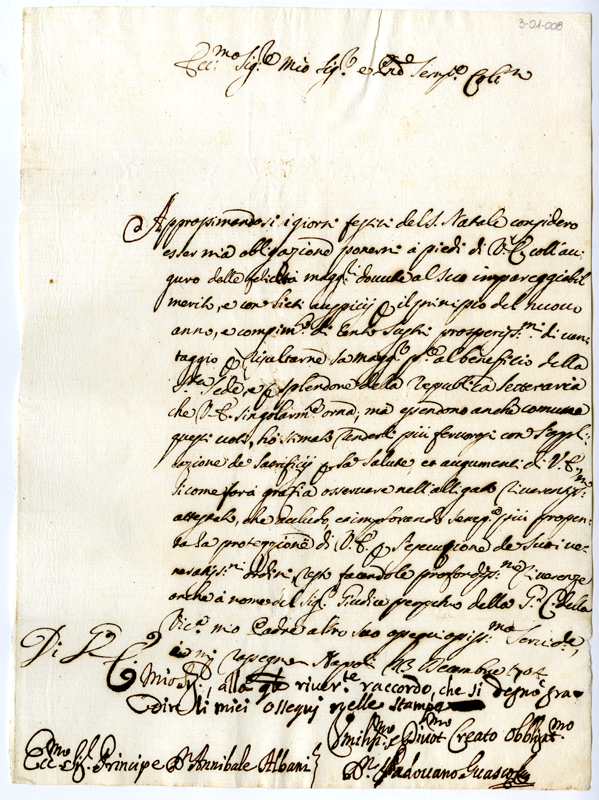 3-01-008
Ecc.mo Sig.re mio Sig.re e Pnd Semp.e Col.mo
Approssimandosi i giorni festiui del S. Natale considero
esser mia obligazione ponermi à piedi di V. E. coll' au-
guro delle felicità magg.ri douute al suo impareggiabil
merito, e con lieti auspicij il principio del nuouo
anno, e compim.to di prosperiss.mi di uan-
taggio risultarne la magg.r al beneficio della
S.ta Sede e splendore della republica letteraria
che V. E. singolarm.te orna, ma essendo anche comune
questi uoti, hò stimato renderli più feruorosi con l'appli-
cazione de sacrificij la salute, et augumenti di V. E.
si come farà grazia osseruare nell' alligato riuerentiss.mo
attestato, che accludo, et implorando semp.e più propen-
sa la protezione di V. E. l'esecuzione de suoi ue-
neratiss.mi ordini resto facendole profondiss.me riuerenze
anche à nome del Sig.r Giudice perpetuo della G. C. della
Vic.a mio Padre altro suo ossequiosiss.mo Seru.e,
Di V. E. rassegno Napoli 13 Decembre 1704
Mio Sig.re, alla riuer.te raccordo, che si degni gra-
dire li miei ossequi nelle stampe
Humiliss.mo e Diuot.mo Creato Obbligat.mo
Ecc.mo Sig. Principe D. Annibale Albani
D. Padouano Guasco